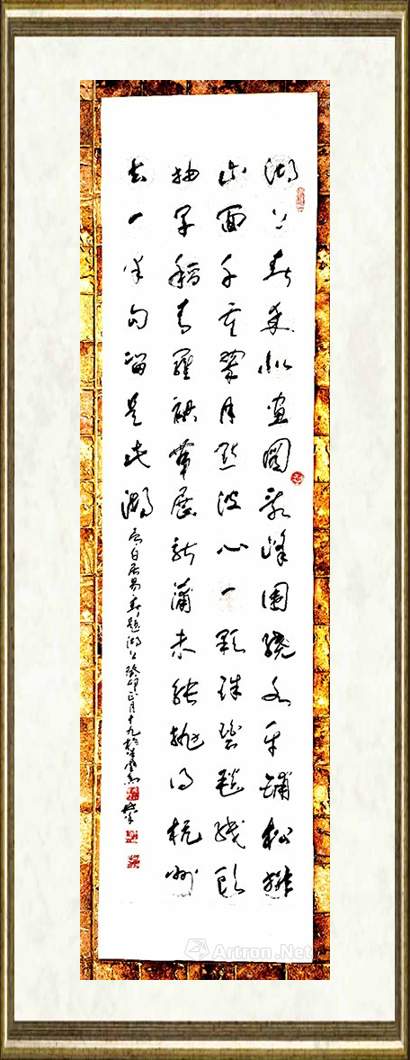 湖上春来似画图乱峰围绕水平铺松排
山面千重翠月点波心一颗珠碧毯线头
抽早稻青羅裙带展新蒲未能抛得杭州
去一半句留是此湖
唐白居易春题湖上癸卯正月十九
Artron.Net